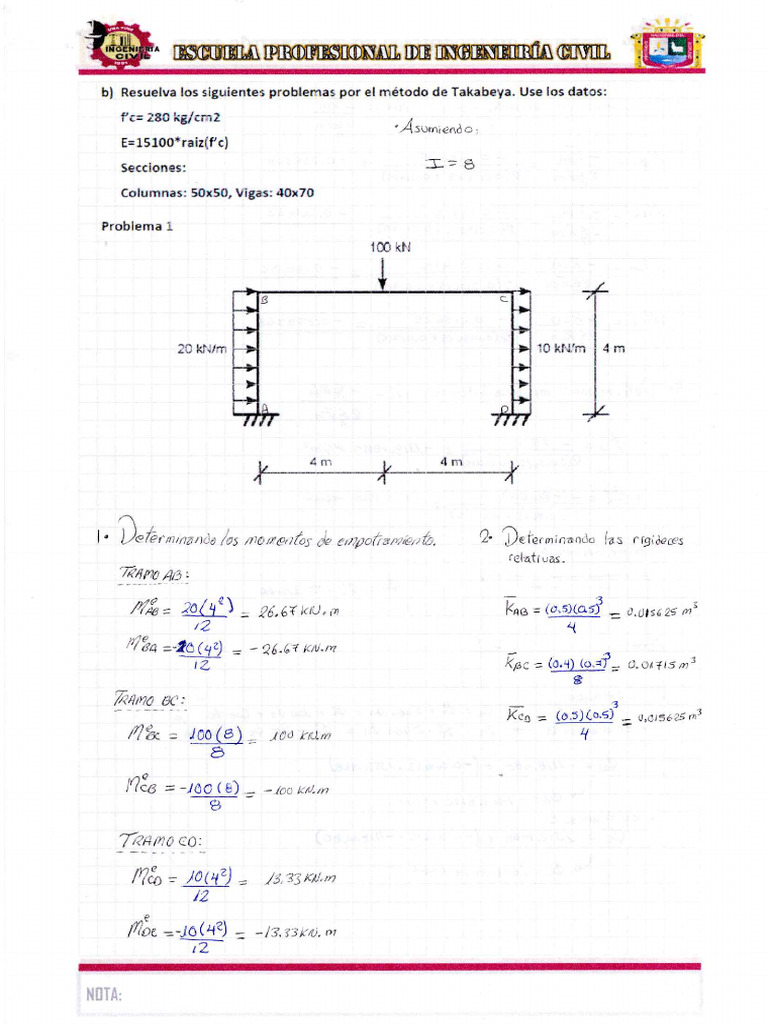 UNA PUNO
INGENIERÍA
CIVIL
1961
ESCUELA PROFESIONAL DE INGENEIRÍA CIVIL
b) Resuelva los siguientes problemas por el método de Takabeya. Use los datos:
f'c= 280 kg/cm2
E=15100*raiz(f'c)
Secciones:
Columnas: 50x50, Vigas: 40x70
• Asumiendo:
I = 8
Problema 1
100 kN
B
C
20 kN/m
10 kN/m
4 m
A
D
4 m
4 m
1. Determinando los momentos de empotramiento.
TRAMO AB:
M^e_AB = 20(4²)/12 = 26.67 KN.m
M^e_BA = -20(4²)/12 = -26.67 KN.m
TRAMO BC:
M^e_BC = 100(8)/8 = 100 KN.m
M^e_CB = -100(8)/8 = -100 KN.m
TRAMO CD:
M^e_CD = 10(4²)/12 = 13.33 KN.m
M^e_DC = -10(4²)/12 = -13.33 KN.m
2. Determinando las rigideces
relativas.
K̅_AB = (0.5)(0.5)³/4 = 0.015625 m³
K̅_BC = (0.4)(0.7)³/8 = 0.01715 m³
K̅_CD = (0.5)(0.5)³/4 = 0.015625 m³
NOTA: